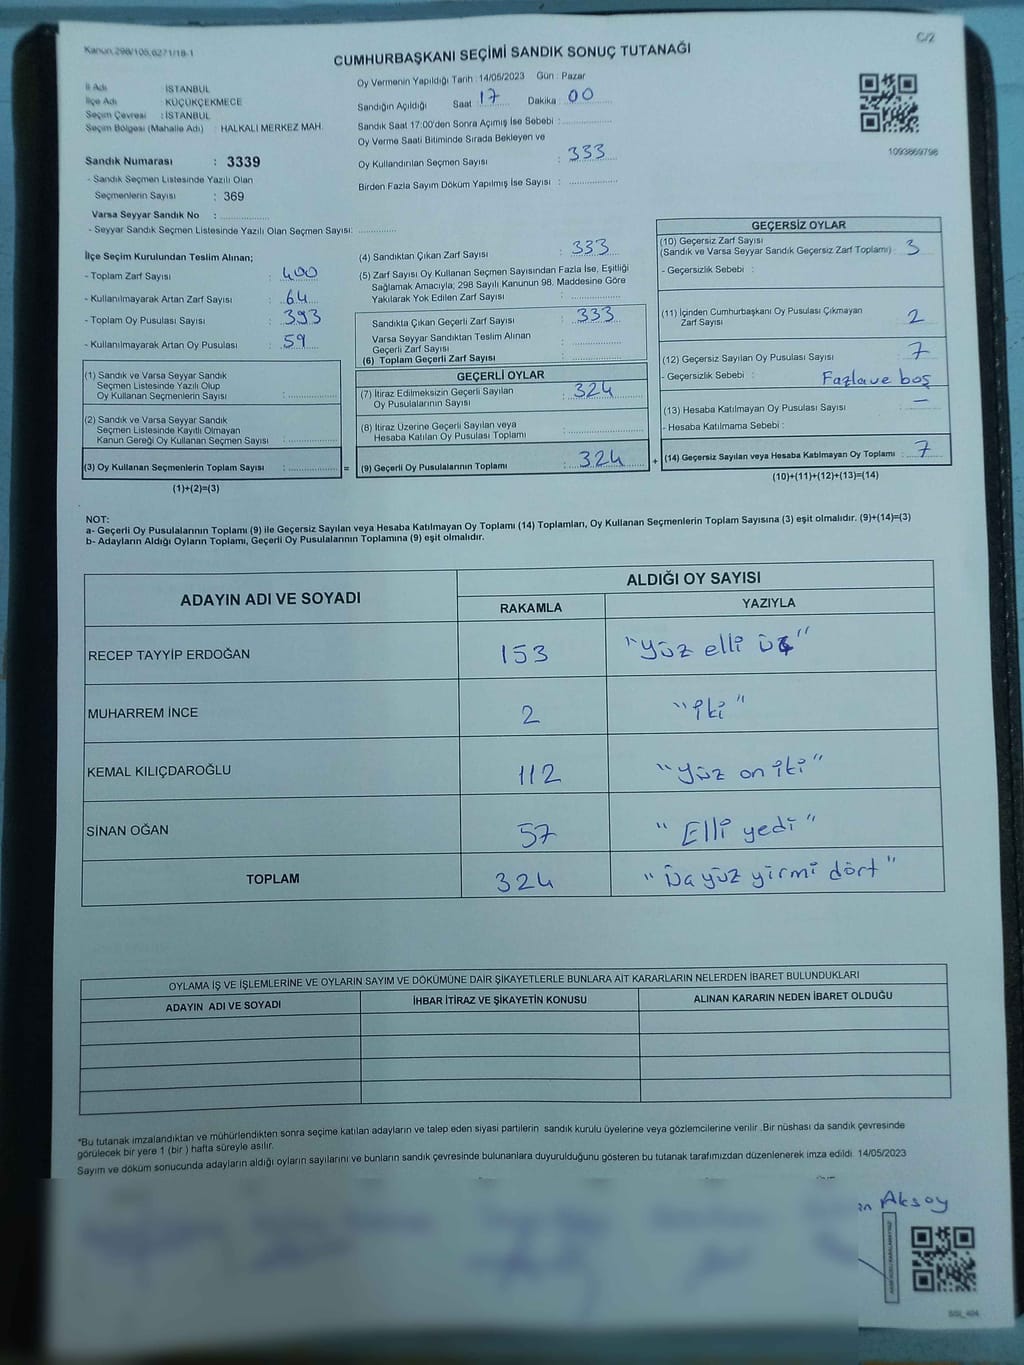 Kanun 298/105,6271/18-1
C/2
CUMHURBAŞKANI SEÇİMİ SANDIK SONUÇ TUTANAĞI
İl Adı : İSTANBUL
İlçe Adı : KÜÇÜKÇEKMECE
Seçim Çevresi : İSTANBUL
Seçim Bölgesi (Mahalle Adı) : HALKALI MERKEZ MAH.
Sandık Numarası : 3339
- Sandık Seçmen Listesinde Yazılı Olan
Seçmenlerin Sayısı : 369
Varsa Seyyar Sandık No :
- Seyyar Sandık Seçmen Listesinde Yazılı Olan Seçmen Sayısı:
Oy Vermenin Yapıldığı Tarih : 14/05/2023 Gün : Pazar
Sandığın Açıldığı Saat 17 Dakika 00
Sandık Saat 17:00'den Sonra Açımış İse Sebebi :
Oy Verme Saati Bitiminde Sırada Bekleyen ve
Oy Kullandırılan Seçmen Sayısı : 333
Birden Fazla Sayım Döküm Yapılmış İse Sayısı :
1093869798
İlçe Seçim Kurulundan Teslim Alınan;
- Toplam Zarf Sayısı : 400
- Kullanılmayarak Artan Zarf Sayısı : 64
- Toplam Oy Pusulası Sayısı : 393
- Kullanılmayarak Artan Oy Pusulası : 59
(1) Sandık ve Varsa Seyyar Sandık
Seçmen Listesinde Yazılı Olup
Oy Kullanan Seçmenlerin Sayısı :
(2) Sandık ve Varsa Seyyar Sandık
Seçmen Listesinde Kayıtlı Olmayan
Kanun Gereği Oy Kullanan Seçmen Sayısı :
(3) Oy Kullanan Seçmenlerin Toplam Sayısı : =
(1)+(2)=(3)
(4) Sandıktan Çıkan Zarf Sayısı : 333
(5) Zarf Sayısı Oy Kullanan Seçmen Sayısından Fazla İse, Eşitliği
Sağlamak Amacıyla; 298 Sayılı Kanunun 98. Maddesine Göre
Yakılarak Yok Edilen Zarf Sayısı :
Sandıkta Çıkan Geçerli Zarf Sayısı : 333
Varsa Seyyar Sandıktan Teslim Alınan
Geçerli Zarf Sayısı :
(6) Toplam Geçerli Zarf Sayısı :
GEÇERLİ OYLAR
(7) İtiraz Edilmeksizin Geçerli Sayılan
Oy Pusulalarının Sayısı : 324
(8) İtiraz Üzerine Geçerli Sayılan veya
Hesaba Katılan Oy Pusulası Toplamı :
(9) Geçerli Oy Pusulalarının Toplamı : 324 +
GEÇERSİZ OYLAR
(10) Geçersiz Zarf Sayısı
(Sandık ve Varsa Seyyar Sandık Geçersiz Zarf Toplamı) : 3
- Geçersizlik Sebebi :
(11) İçinden Cumhurbaşkanı Oy Pusulası Çıkmayan
Zarf Sayısı : 2
(12) Geçersiz Sayılan Oy Pusulası Sayısı : 7
- Geçersizlik Sebebi : Fazlave boş
(13) Hesaba Katılmayan Oy Pusulası Sayısı : —
- Hesaba Katılmama Sebebi :
(14) Geçersiz Sayılan veya Hesaba Katılmayan Oy Toplamı : 7
(10)+(11)+(12)+(13)=(14)
NOT:
a- Geçerli Oy Pusulalarının Toplamı (9) ile Geçersiz Sayılan veya Hesaba Katılmayan Oy Toplamı (14) Toplamları, Oy Kullanan Seçmenlerin Toplam Sayısına (3) eşit olmalıdır. (9)+(14)=(3)
b- Adayların Aldığı Oyların Toplamı, Geçerli Oy Pusulalarının Toplamına (9) eşit olmalıdır.
ADAYIN ADI VE SOYADI
ALDIĞI OY SAYISI
RAKAMLA YAZIYLA
RECEP TAYYİP ERDOĞAN 153 "Yüz elli üç"
MUHARREM İNCE 2 "iki"
KEMAL KILIÇDAROĞLU 112 "Yüz on iki"
SİNAN OĞAN 57 "Elli yedi"
TOPLAM 324 "Üçyüz yirmi dört"
OYLAMA İŞ VE İŞLEMLERİNE VE OYLARIN SAYIM VE DÖKÜMÜNE DAİR ŞİKAYETLERLE BUNLARA AİT KARARLARIN NELERDEN İBARET BULUNDUKLARI
ADAYIN ADI VE SOYADI İHBAR İTİRAZ VE ŞİKAYETİN KONUSU ALINAN KARARIN NEDEN İBARET OLDUĞU
*Bu tutanak imzalandıktan ve mühürlendikten sonra seçime katılan adayların ve talep eden siyasi partilerin sandık kurulu üyelerine veya gözlemcilerine verilir .Bir nüshası da sandık çevresinde
görülecek bir yere 1 (bir ) hafta süreyle asılır.
Sayım ve döküm sonucunda adayların aldığı oyların sayılarını ve bunların sandık çevresinde bulunanlara duyurulduğunu gösteren bu tutanak tarafımızdan düzenlenerek imza edildi. 14/05/2023
Aksoy